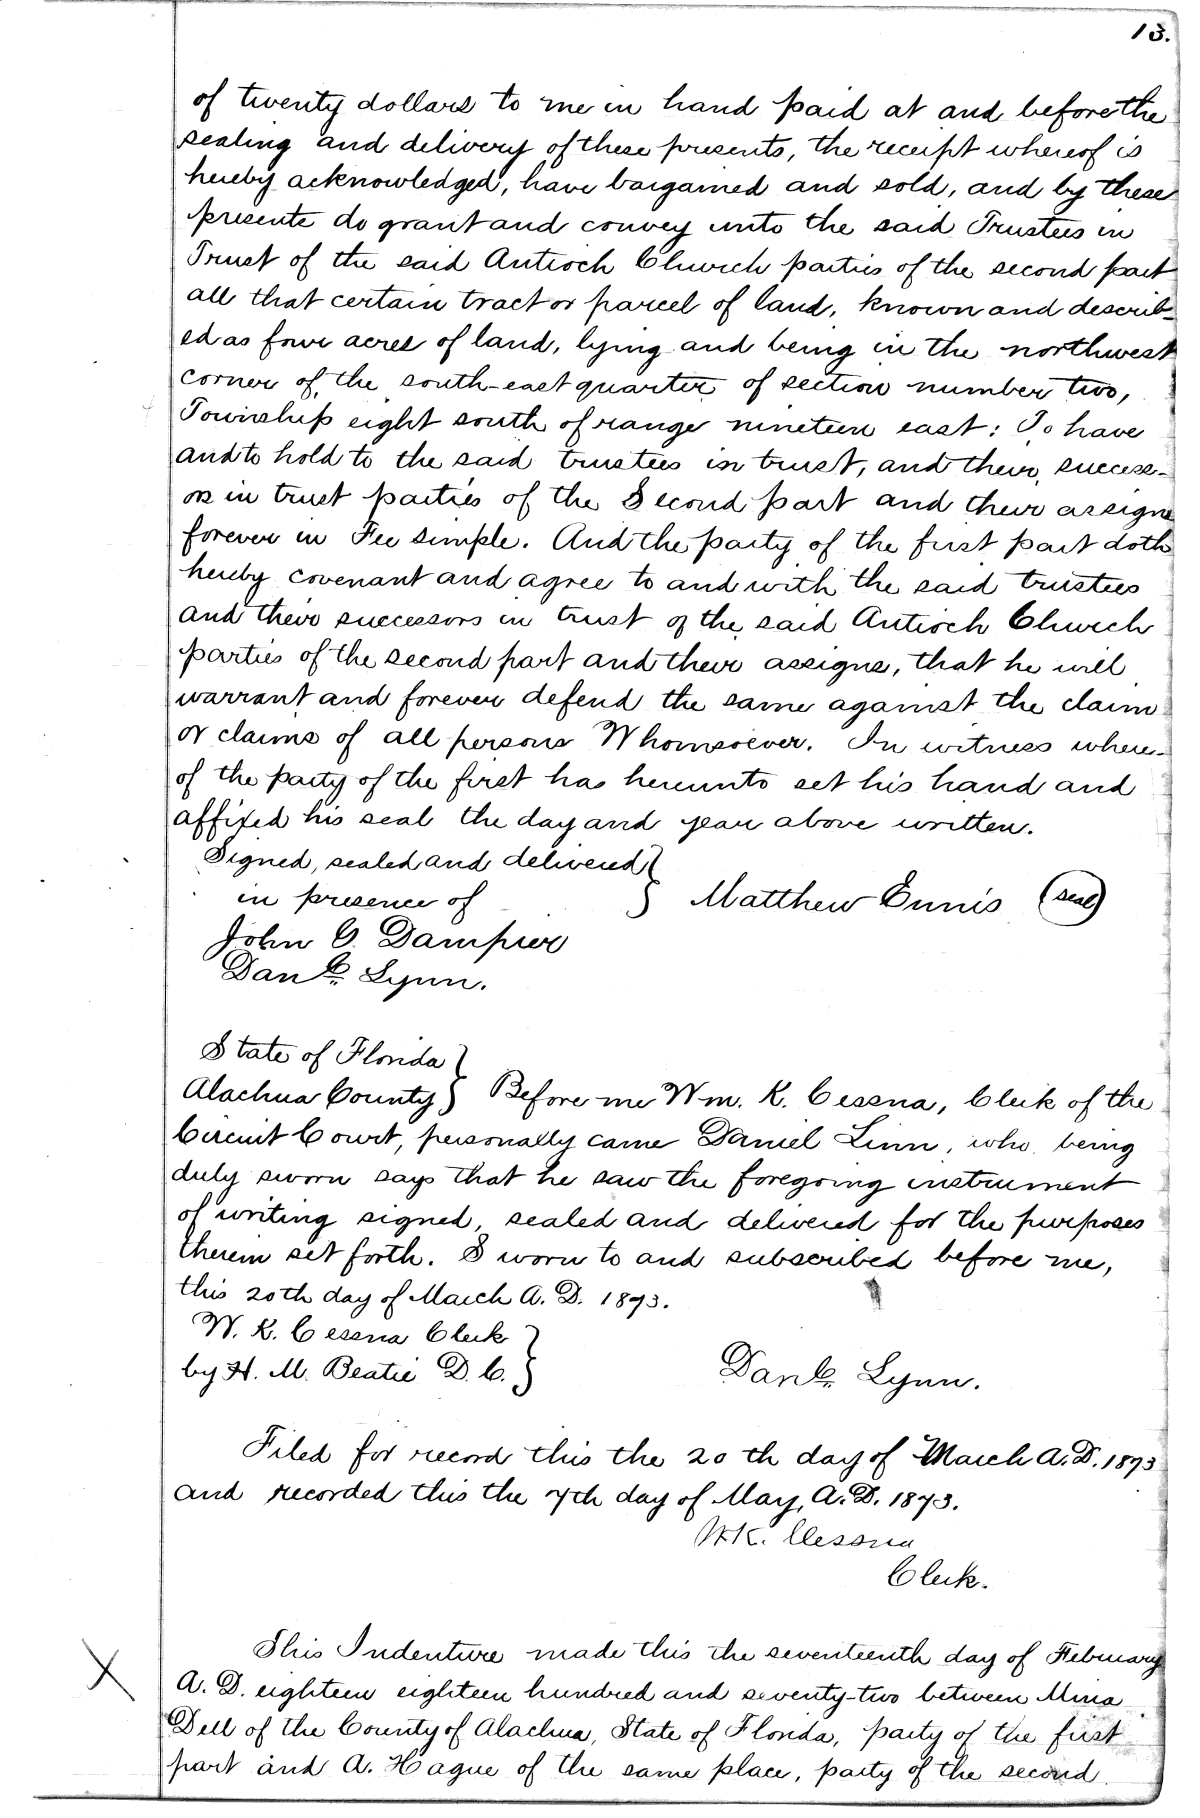 13.
of twenty dollars to me in hand paid at and before the
sealing and delivery of these presents, the receipt whereof is
hereby acknowledged, have bargained and sold, and by these
presents do grant and convey unto the said Trustees in
Trust of the said Antioch Church parties of the second part
all that certain tract or parcel of land, known and describ-
ed as four acres of land, lying and being in the northwest
corner of the south-east quarter of section number two,
Township eight south of range nineteen east: To have
and to hold to the said trustees in trust, and their success-
ors in trust parties of the Second part and their assigns
forever in Fee simple. And the party of the first part doth
hereby covenant and agree to and with the said trustees
and their successors in trust of the said Antioch Church
parties of the second part and their assigns, that he will
warrant and forever defend the same against the claim
or claims of all persons Whomsoever. In witness where-
of the party of the first has hereunto set his hand and
affixed his seal the day and year above written.
Signed, sealed and delivered }
in presence of } Matthew Ennis (seal)
John C. Dampier
Danl. Lynn.
State of Florida }
Alachua County } Before me Wm. K. Cessna, Clerk of the
Circuit Court, personally came Daniel Linn, who being
duly sworn says that he saw the foregoing instrument
of writing signed, sealed and delivered for the purposes
therein set forth. Sworn to and subscribed before me,
this 20th day of March A. D. 1873.
W. K. Cessna Clerk }
by H. M. Beatie D. C. } Danl. Lynn.
Filed for record this the 20th day of March A. D. 1873
and recorded this the 7th day of May, A. D. 1873.
W.K. Cessna
Clerk.
This Indenture made this the seventeenth day of February
A. D. eighteen eighteen hundred and seventy-two between Mina
Dell of the County of Alachua, State of Florida, party of the first
part and A. Hague of the same place, party of the second